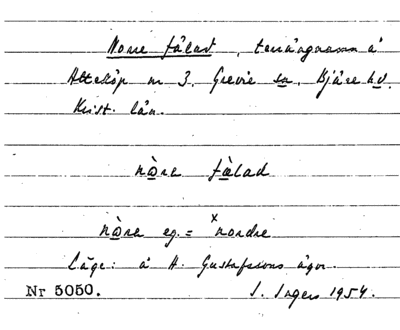 Norre fålad, terrängnamn å
Atteköp nr 3, Grevie sn, Bjäre hd.
Krist. län.
nòra fǽlad
nòra eg. = ˣnordre
Läge: å H. Gustafssons ägor
Nr 5050. I. Ingers 1954.